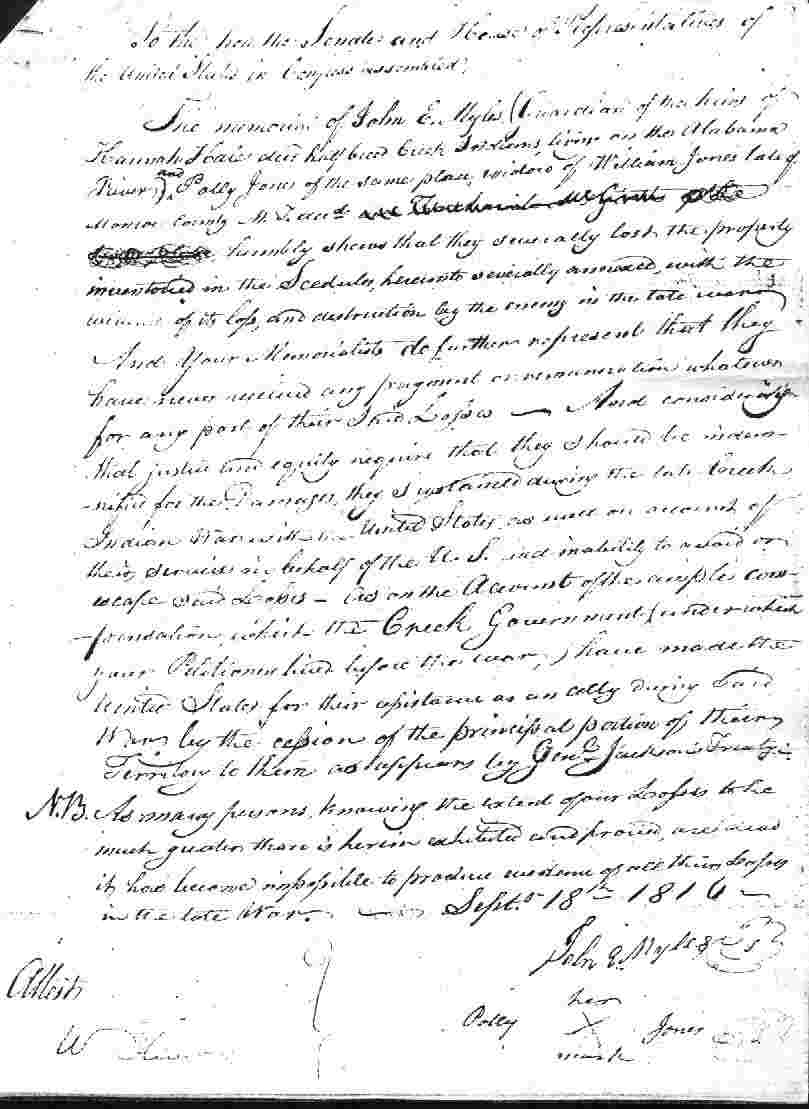 To the hon. the Senate and House of Representatives of
the United States in Congress assembled.
The memorial of John E. Myles (Guardian of the heirs of
Hannah Hale decd half breed Creek Indians living on the Alabama
River) and Polly Jones of the same place, widow of William Jones late of
Monroe County M. T. decd
humbly shows that they severally lost the property
inventoried in the Scedules, hereunto severally annexed, with the
of its loss, and destruction by the enemy in the late war
And Your Memorialists do further represent that they
have never received any payment or remuneration whatever
for any part of their said Losses — And considering
that justice and equity require that they should be indem-
-nified for the Damages, they sustained during the late Creek
Indian War with the United States, as well on account of
their services in behalf of the U. S. and inability to avoid or
escape said Losses — as on the Account of the ample com-
-pensation, which the Creek Government (under which
your Petitioners lived before the war,) have made the
United States for their assistance as an ally during said
War, by the cession of the principal portion of their
Territory to them as appears by Genl. Jackson's Treaty.
N.B. As many persons, knowing the extent of our Losses to be
much greater than is herein exhibited and proved, are dead
it has become impossible to produce evidence of all their Losses
in the late War. — Septr. 18th 1816 —
John E. Myles
Attest
her
Polly X Jones
mark
W